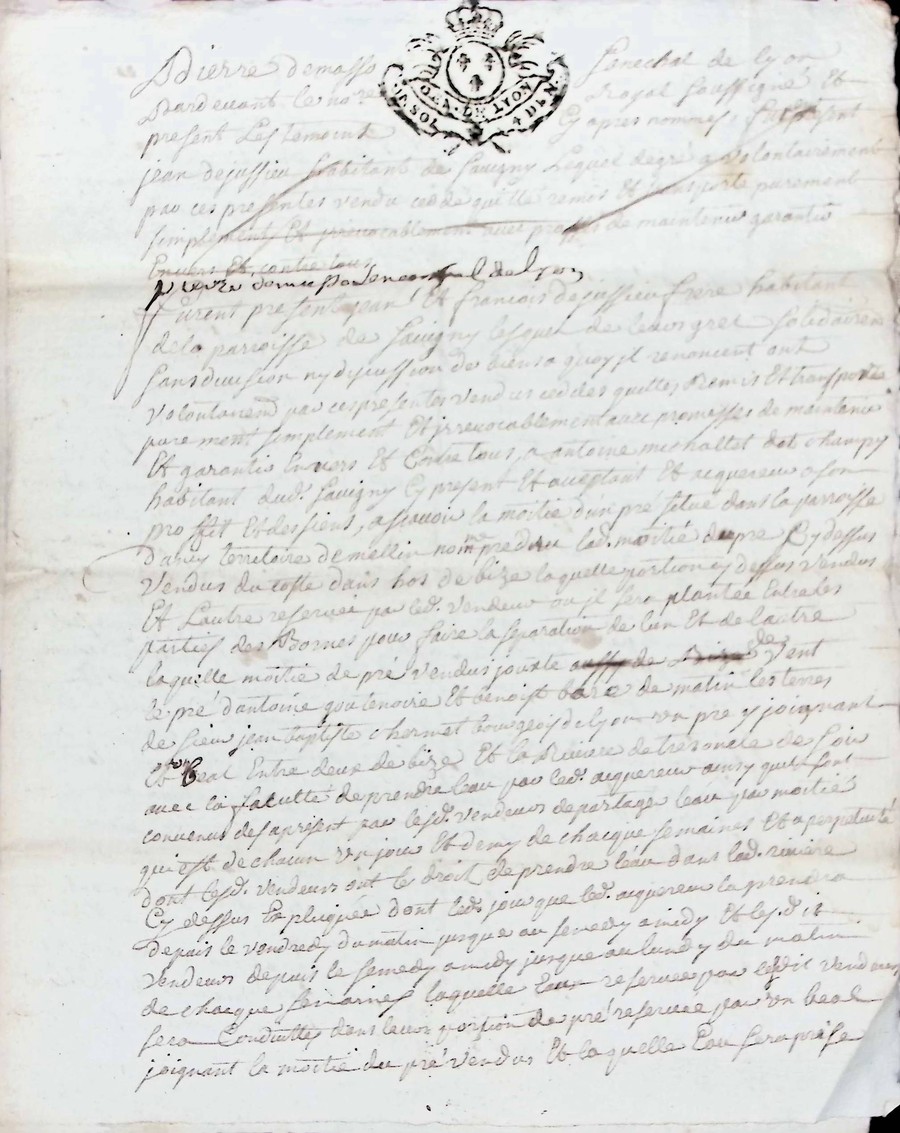 Pierre demasso Senechal de lyon
Pardevant le nore Royal soussigné Et
present Les temoints Cy apres nommes, fut present
jean dejussieu habitant de Savigny Lequel degré a volontairement
par ces presentes vendu ceddé quitté remis Et transporté purement
simplement Et jrrevocablement avec promesses de maintenir garantir
Envers Et contre tous
pierre demasso senechal de lyon
GEN. DE LYON
UN SOL 4 DEN
Furent present jean Et francois dejussieu frere habitant
de la parroisse de Savigny lesquel de leurs gret solidairem
sans division ny discussion de biens a quoy jl renoncent ont
volontairem par ces presentes vendus ceddes quittes, Remis Et transportés
purement simplement Et jrrevocablement avec promesses de maintenir
Et garantir Envers Et Contre tous, a antoine michallet dot champy
habitant aud. Savigny Cy present Et acceptant Et acquereur a son
proffit Et des siens, ascavoir la moitié dun pré situé dans la parroisse
darcy territoire de mellin nommé pré dru lad. moitié du pre Cy dessus
vendus du cotte dans hos de bize laquelle portion cy dessus vendus
Et Lautre reservée par led. vendeur ou jl sera plantée Entre les
parties des Bornes pour faire la separation de lun Et de lautre
laquelle moitié de pré vendus jouxte de vent
le pré dantoine goutenoire Et benoist de matin les terres
de sieur jean baptiste chermet bourgeois de lyon un pre y joignant
Et Beal Entre deux de bize Et la Riviere de tresoncle de soir
avec la faculté de prendre leau par led. acquereur ainsy quil sont
convenus des apresent par lesd. vendeurs de partager leau par moitié
qui est de chacun un jour Et demy de chacque semaines Et a perpetuité
dont lesd. vendeurs ont le droit de prendre leau dans lad. riviere
Cy dessus Expliquée dont led. jour que led. acquereur la prendra
depuis le vendredy du matin jusque au semedy a midy Et lesdit
vendeurs depuis le semedy a midy jusque au lundy du matin
de chacque semaines laquelle Eau reservée par lesdit vendeurs
sera Conduittes dans leur portion de pré reservée par un beal
joignant la moitié du pré vendus Et laquelle Eau sera prise